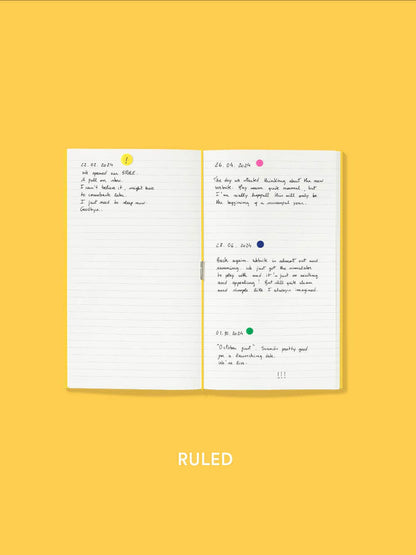 22.02.2024
!
We opened our STORE.
I can't believe it, might have
to comeback later.
I just need to sleep now
Goodbye.
26.04.2024
The day we started thinking about the new
website. May seem quite normal, but
I'm really hopeful this will only be
the beginning of a successful year.
28.06.2024
Back again. Website is almost out and
running. We just got the
to play with and it's just so exciting
and! But still quite clean
and simple like I always imagined.
01.10.2024
"October first". Sounds pretty good
for a launching date.
We're live.
!!!
RULED